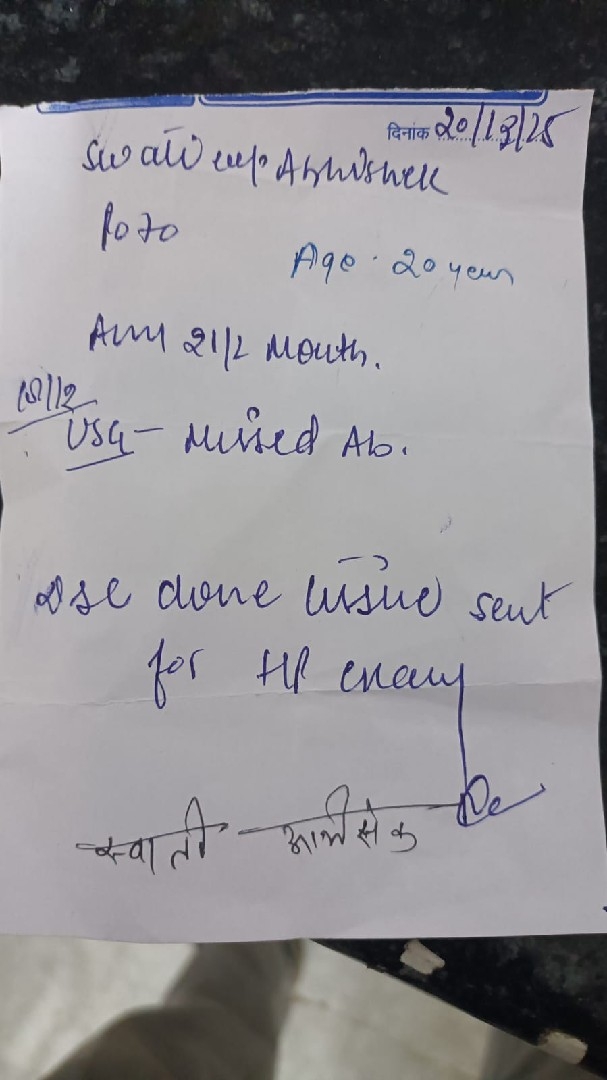 दिनांक 20/12/25
Swati w/o Abhishek
P0 + 0
Age · 20 year
Am 2 1/2 Month.
USG - Missed Ab.
D&C done tissue sent
for HP exam
स्वाती अभिषेक